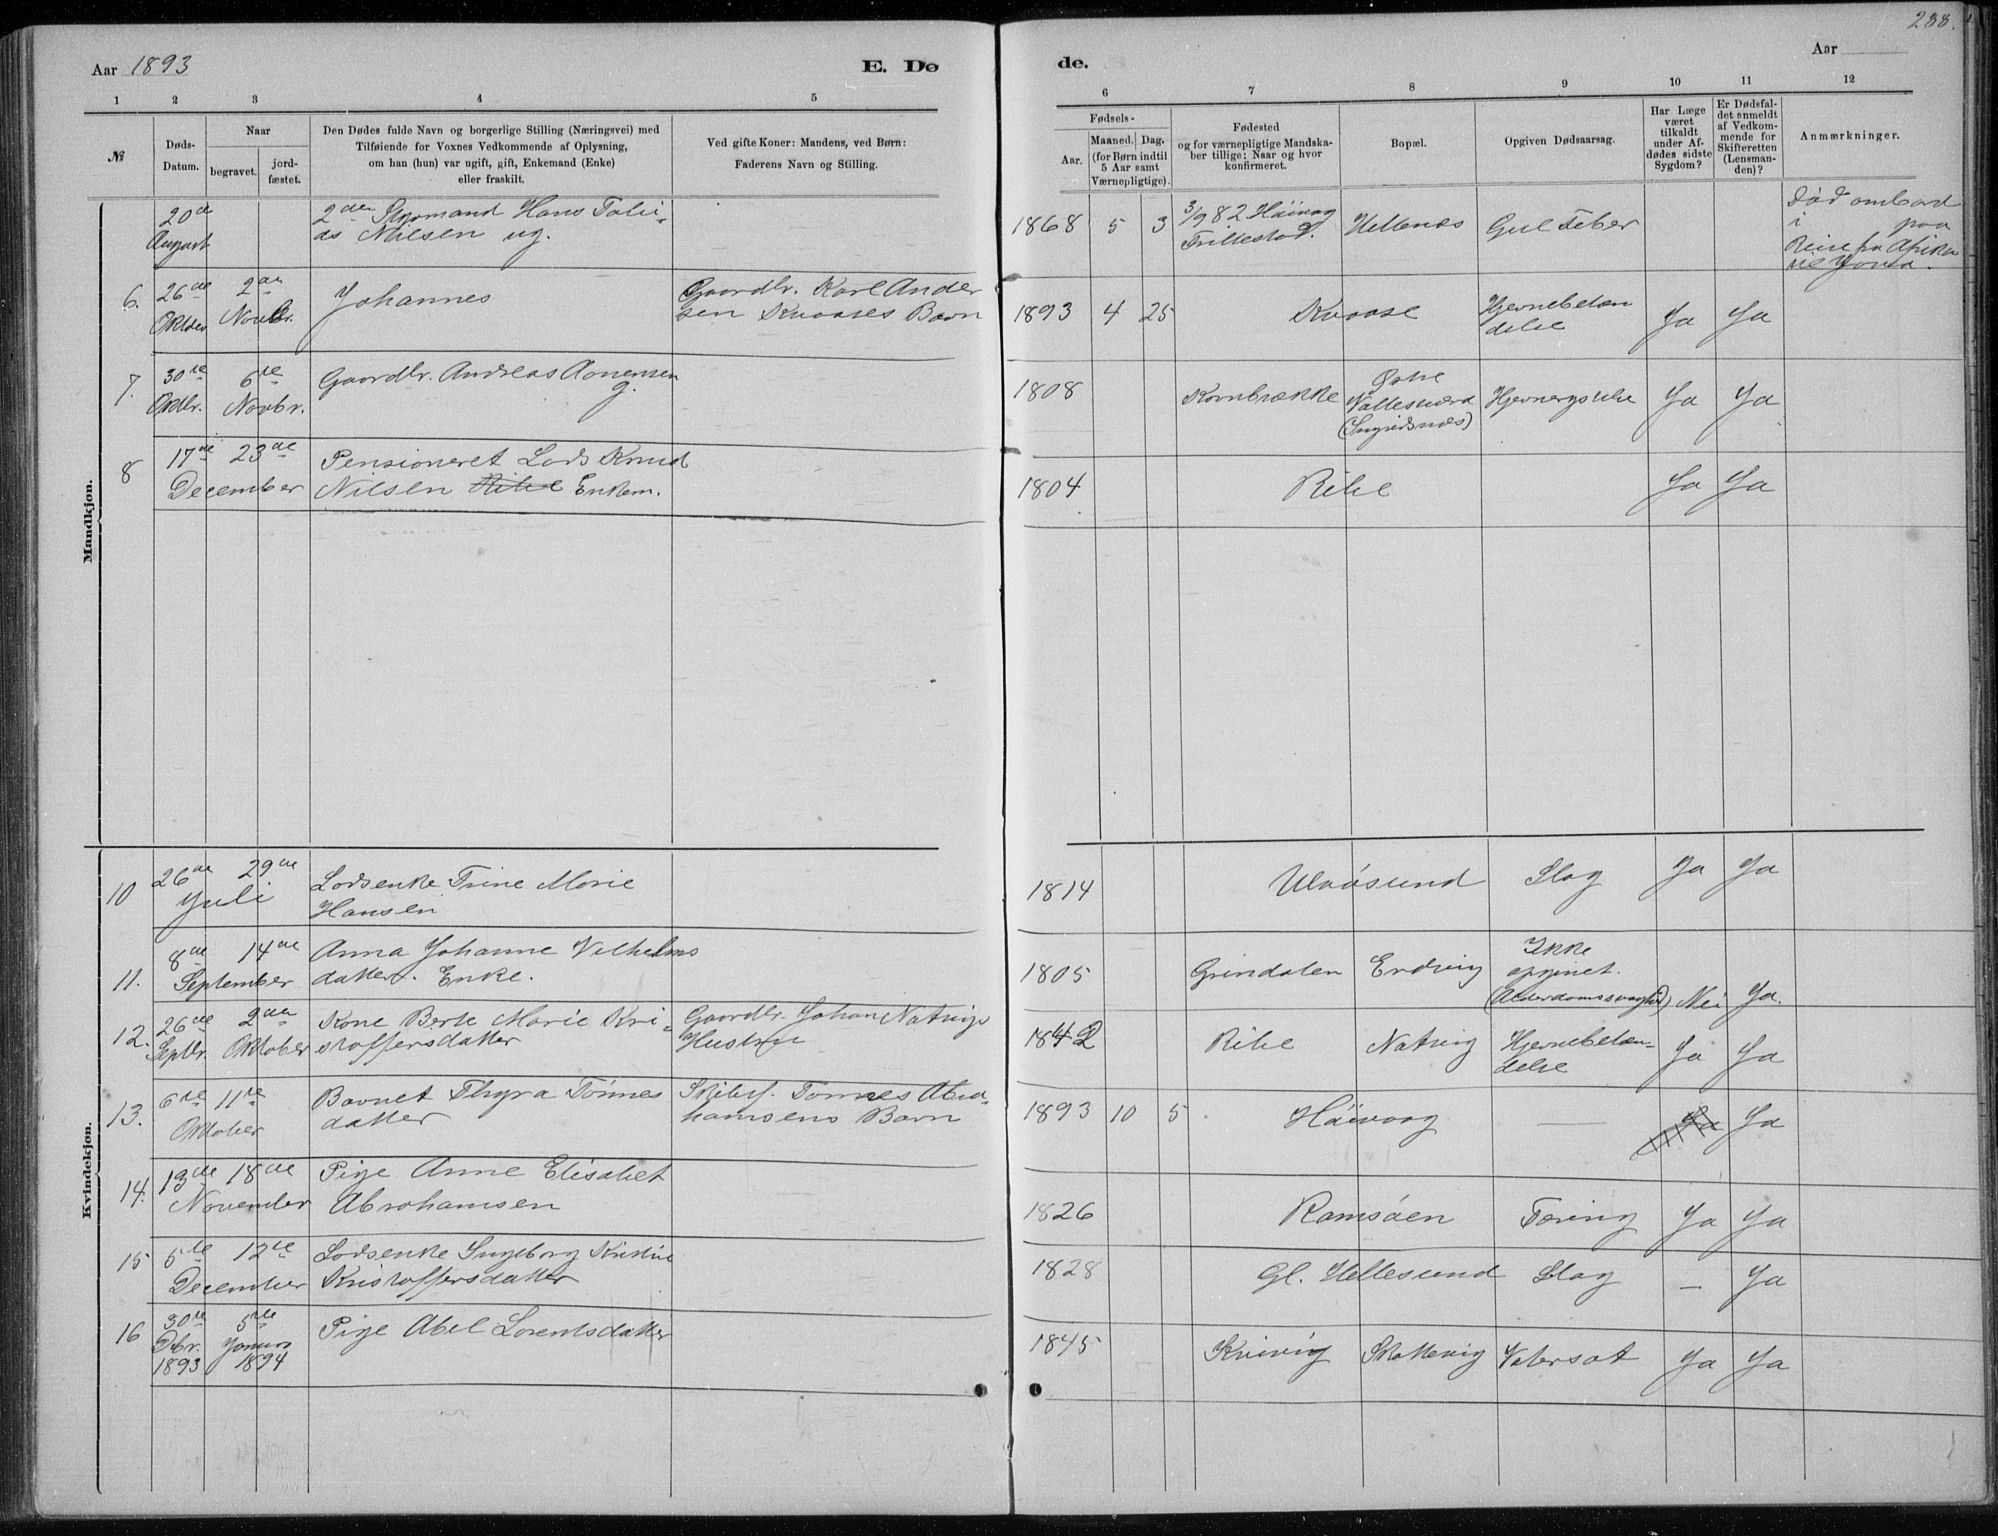 288.
Aar 1893
E. Dø
de.
Aar
1 2 3 4 5
6 7 8 9 10 11 12
№
Døds-
Datum.
Naar
begravet.
jord-
fæstet.
Den Dødes fulde Navn og borgerlige Stilling (Næringsvei) med
Tilføiende for Voxnes Vedkommende af Oplysning,
om han (hun) var ugift, gift, Enkemand (Enke)
eller fraskilt.
Ved gifte Koner: Mandens, ved Børn:
Faderens Navn og Stilling.
Fødsels-
Aar.
Maaned.
Dag.
(for Børn indtil
5 Aar samt
Værnepligtige).
Fødested
og for værnepligtige Mandska-
ber tillige: Naar og hvor
konfirmeret.
Bopæl.
Opgiven Dødsaarsag.
Har Læge
været
tilkaldt
under Af-
dødes sidste
Sygdom?
Er Dødsfal-
det anmeldt
af Vedkom-
mende for
Skifteretten
(Lensman-
den)?
Anmærkninger.
Mandkjøn.
20de
August
2den Styrmand Hans Tobi-
as Nilsen ug.
1868 5 3
3/9 82 Höivåg
Trillestad.
Hellenes
Gul Feber
Död ombord
i paa
Reise fra Afrika
til
6.
26de
Oktober
2den
Novbr.
Johannes
Gaardbr. Karl Ander
sen Kvaases Barn
1893 4 25
Kvaase
Hjernebetæn
delse
Ja Ja
7.
30te
Oktbr.
6te
Novbr.
Gaardbr. Andreas Aanensen
g.
1808
Kornbrække
Østre
Vallesværd
(Ingridsnæs)
Hjernerystelse
Ja Ja
8
17de 23de
December
Pensioneret Lods Knud
Nilsen Ribe Enkem.
1804
Ribe
Ja Ja
Kvindekjøn.
10
26de 29de
Juli
Lodsenke Trine Marie
Hansen
1814
Ulvösund
Slag
Ja Ja
11.
8de 14de
September
Anna Johanne Vilhelms
datter. Enke.
1805
Grindalen
Eidvig
Ikke
opgivet.
(Alderdomssvaghed)
Nei Ja.
12.
26de
Septbr.
2den
Oktober
Kone Berte Marie Kri-
stoffersdatter
Gaardbr. Johan Natvigs
Hustru
1842
Ribe
Natvig
Hjernebetæn-
delse
Ja Ja
13.
6te 11te
Oktober
Barnet Thyra Tönnes
datter
Skibsf. Tönnes Abra-
hamsens Barn
1893 10 5
Höivaag
—
Ja Ja
14.
13de 18de
November
Pige Anne Elisabet
Abrahamsen
1826
Ramsöen
Tæring
Ja Ja
15
5te 12te
December
Lodsenke Ingeborg Kristine
Kristoffersdatter
1828
Gl. Hellesund
Slag
— Ja
16
30te
Dcbr.
1893
5te
Januar
1894
Pige Abel Lorentsdatter
1845
Kvivig
Skottevig
Vatersot
Ja Ja